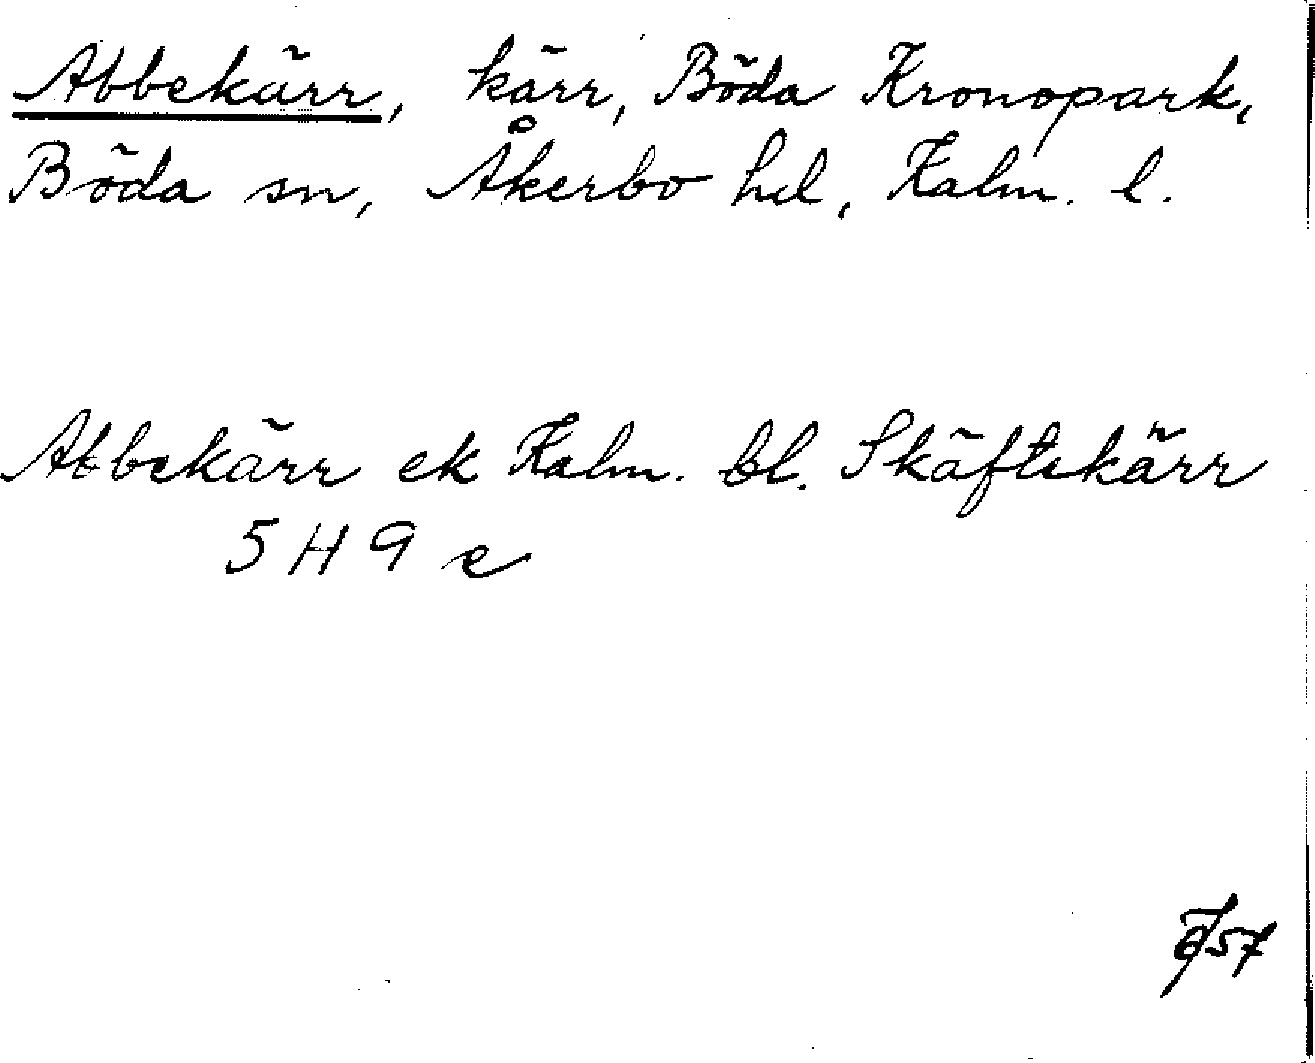 Abbekärr, kärr, Böda Kronopark,
Böda sn, Åkerbo hd, Kalm. l.
Abbekärr ek Kalm. bl. Skäftekärr
5 H 9 e